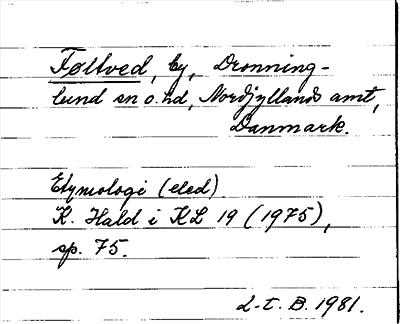 Føltved, by, Dronning-
lund sn o. hd, Nordjyllands amt,
Danmark.
Etymologi (eled)
K. Hald i KL 19 (1975),
sp. 75.
L-t. B. 1981.